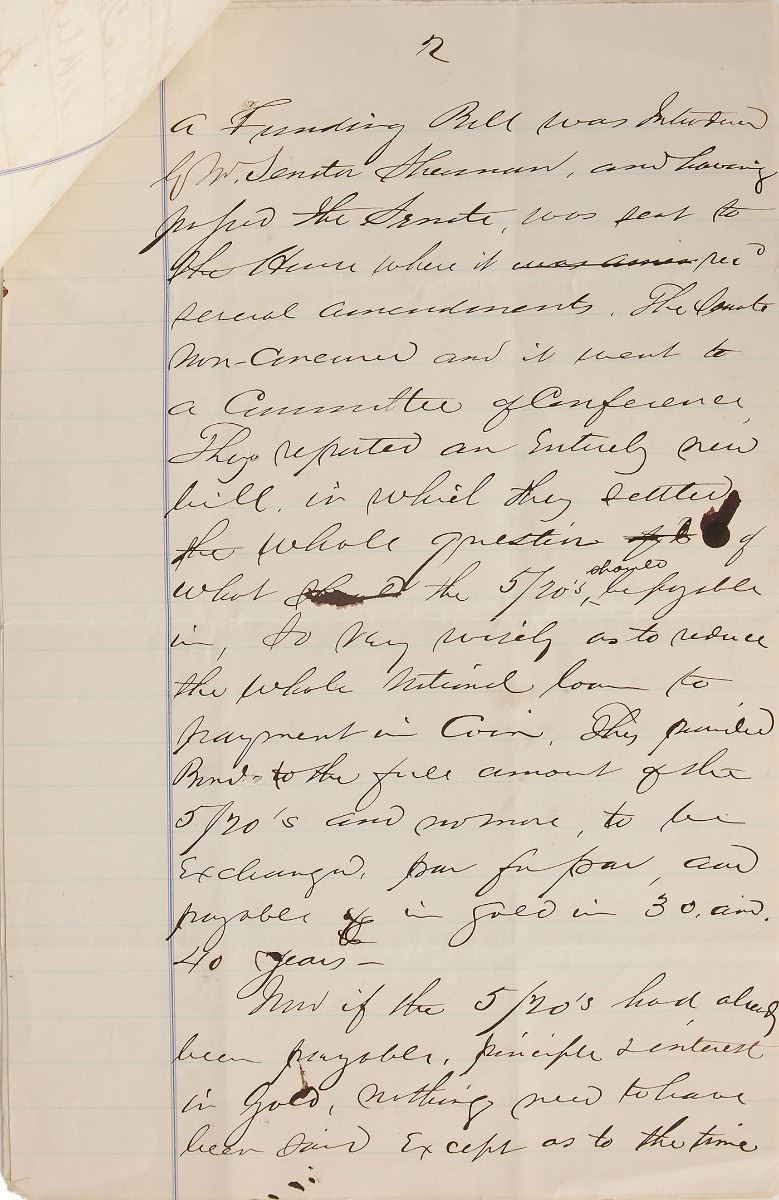 2
a Funding Bill was Introduced
by Mr. Senator Sherman, and having
passed the Senate, was sent to
the House where it was amen rec'd
several amendments. The Senate
non-concurred and it went to
a Committee of Conference,
They reported an Entirely new
bill, in which they settled
the whole question of
what should the 5/20's, should be payable
in, so very wisely as to reduce
the whole National loan to
payment in Coin. They provided
Bonds to the full amount of the
5/20's and no more, to be
Exchanged, par for par, and
payable in gold in 30, and
40 years—
Now if the 5/20's had already
been payable, principle & interest
in Gold, nothing need to have
been said Except as to the time